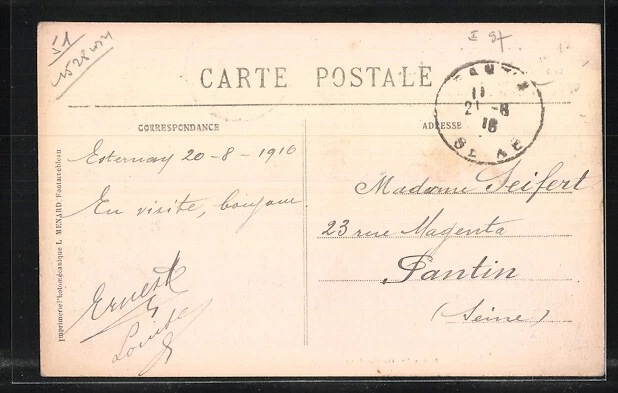 CARTE POSTALE
PANTIN
11
21 -8
16
SEINE
CORRESPONDANCE
ADRESSE
Esternay 20-8-1916
En visite, bonjour
Ernest
Louise
Madame Seifert
23 rue Magenta
Pantin
(Seine)
Imprimerie Photomécanique L. MENARD Fontainebleau